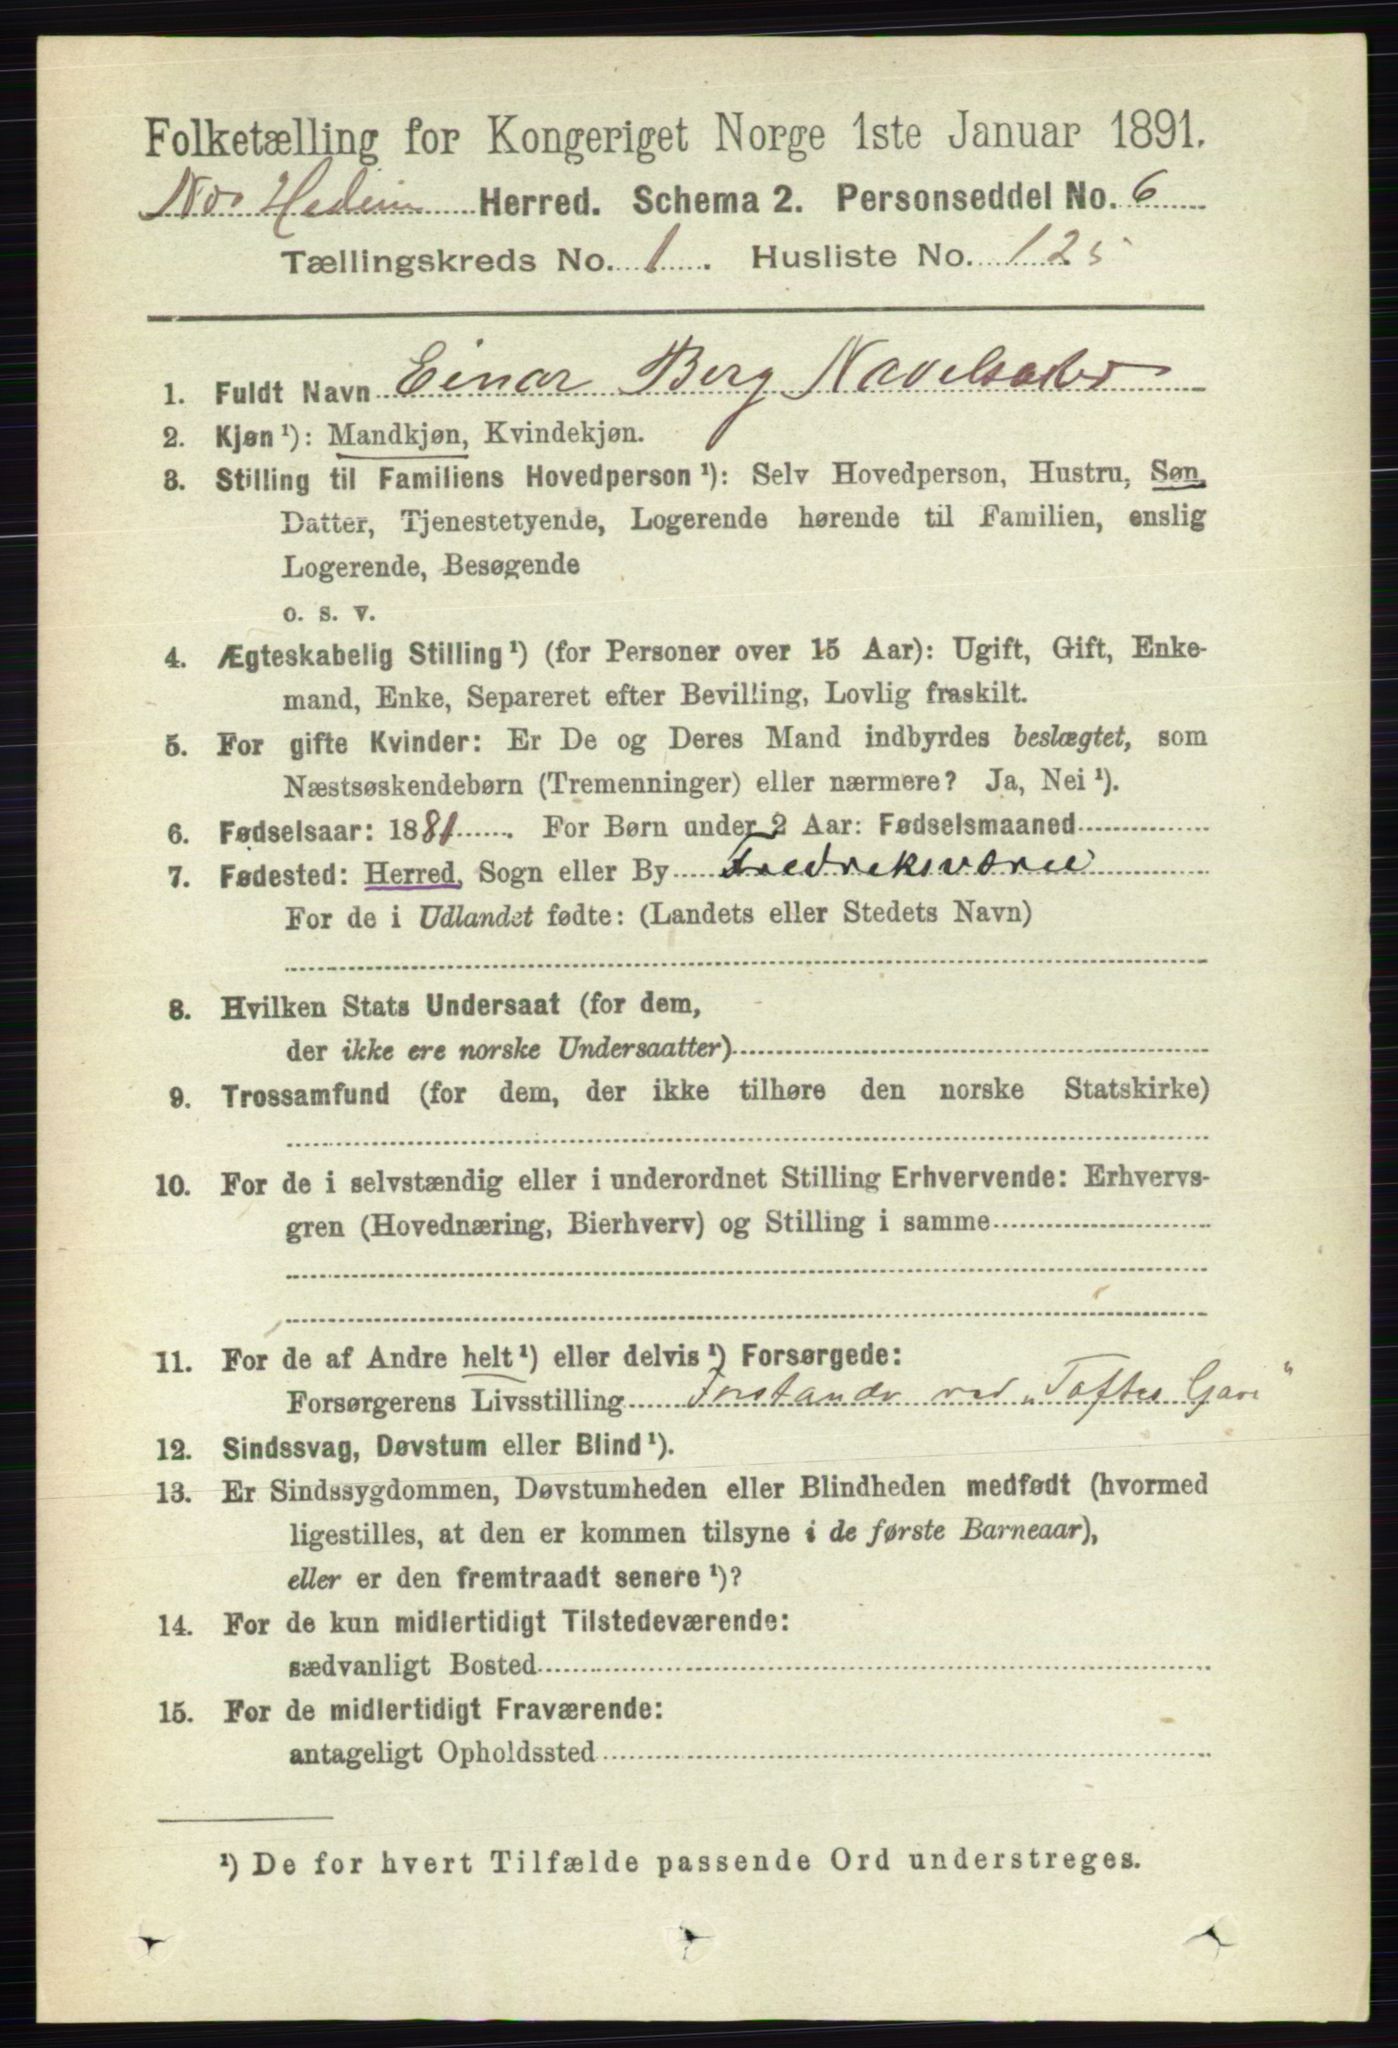 Folketælling for Kongeriget Norge 1ste Januar 1891.
Herred. Schema 2. Personseddel No. 6
Tællingskreds No. 1. Husliste No. 125
1. Fuldt Navn Einar Berg Navelsaker
2. Kjøn¹): Mandkjøn, Kvindekjøn.
3. Stilling til Familiens Hovedperson¹): Selv Hovedperson, Hustru, Søn,
Datter, Tjenestetyende, Logerende hørende til Familien, enslig
Logerende, Besøgende
o. s. v.
4. Ægteskabelig Stilling¹) (for Personer over 15 Aar): Ugift, Gift, Enke-
mand, Enke, Separeret efter Bevilling, Lovlig fraskilt.
5. For gifte Kvinder: Er De og Deres Mand indbyrdes beslægtet, som
Næstsøskendebørn (Tremenninger) eller nærmere? Ja, Nei¹).
6. Fødselsaar: 1881. For Børn under 2 Aar: Fødselsmaaned
7. Fødested: Herred, Sogn eller By Fredriksværn
For de i Udlandet fødte: (Landets eller Stedets Navn)
8. Hvilken Stats Undersaat (for dem,
der ikke ere norske Undersaatter)
9. Trossamfund (for dem, der ikke tilhøre den norske Statskirke)
10. For de i selvstændig eller i underordnet Stilling Erhvervende: Erhvervs-
gren (Hovednæring, Bierhverv) og Stilling i samme
11. For de af Andre helt¹) eller delvis¹) Forsørgede:
Forsørgerens Livsstilling Forstander ved "Toftes Gave"
12. Sindssvag, Døvstum eller Blind¹).
13. Er Sindssygdommen, Døvstumheden eller Blindheden medfødt (hvormed
ligestilles, at den er kommen tilsyne i de første Barneaar),
eller er den fremtraadt senere¹)?
14. For de kun midlertidigt Tilstedeværende:
sædvanligt Bosted
15. For de midlertidigt Fraværende:
antageligt Opholdssted
¹) De for hvert Tilfælde passende Ord understreges.